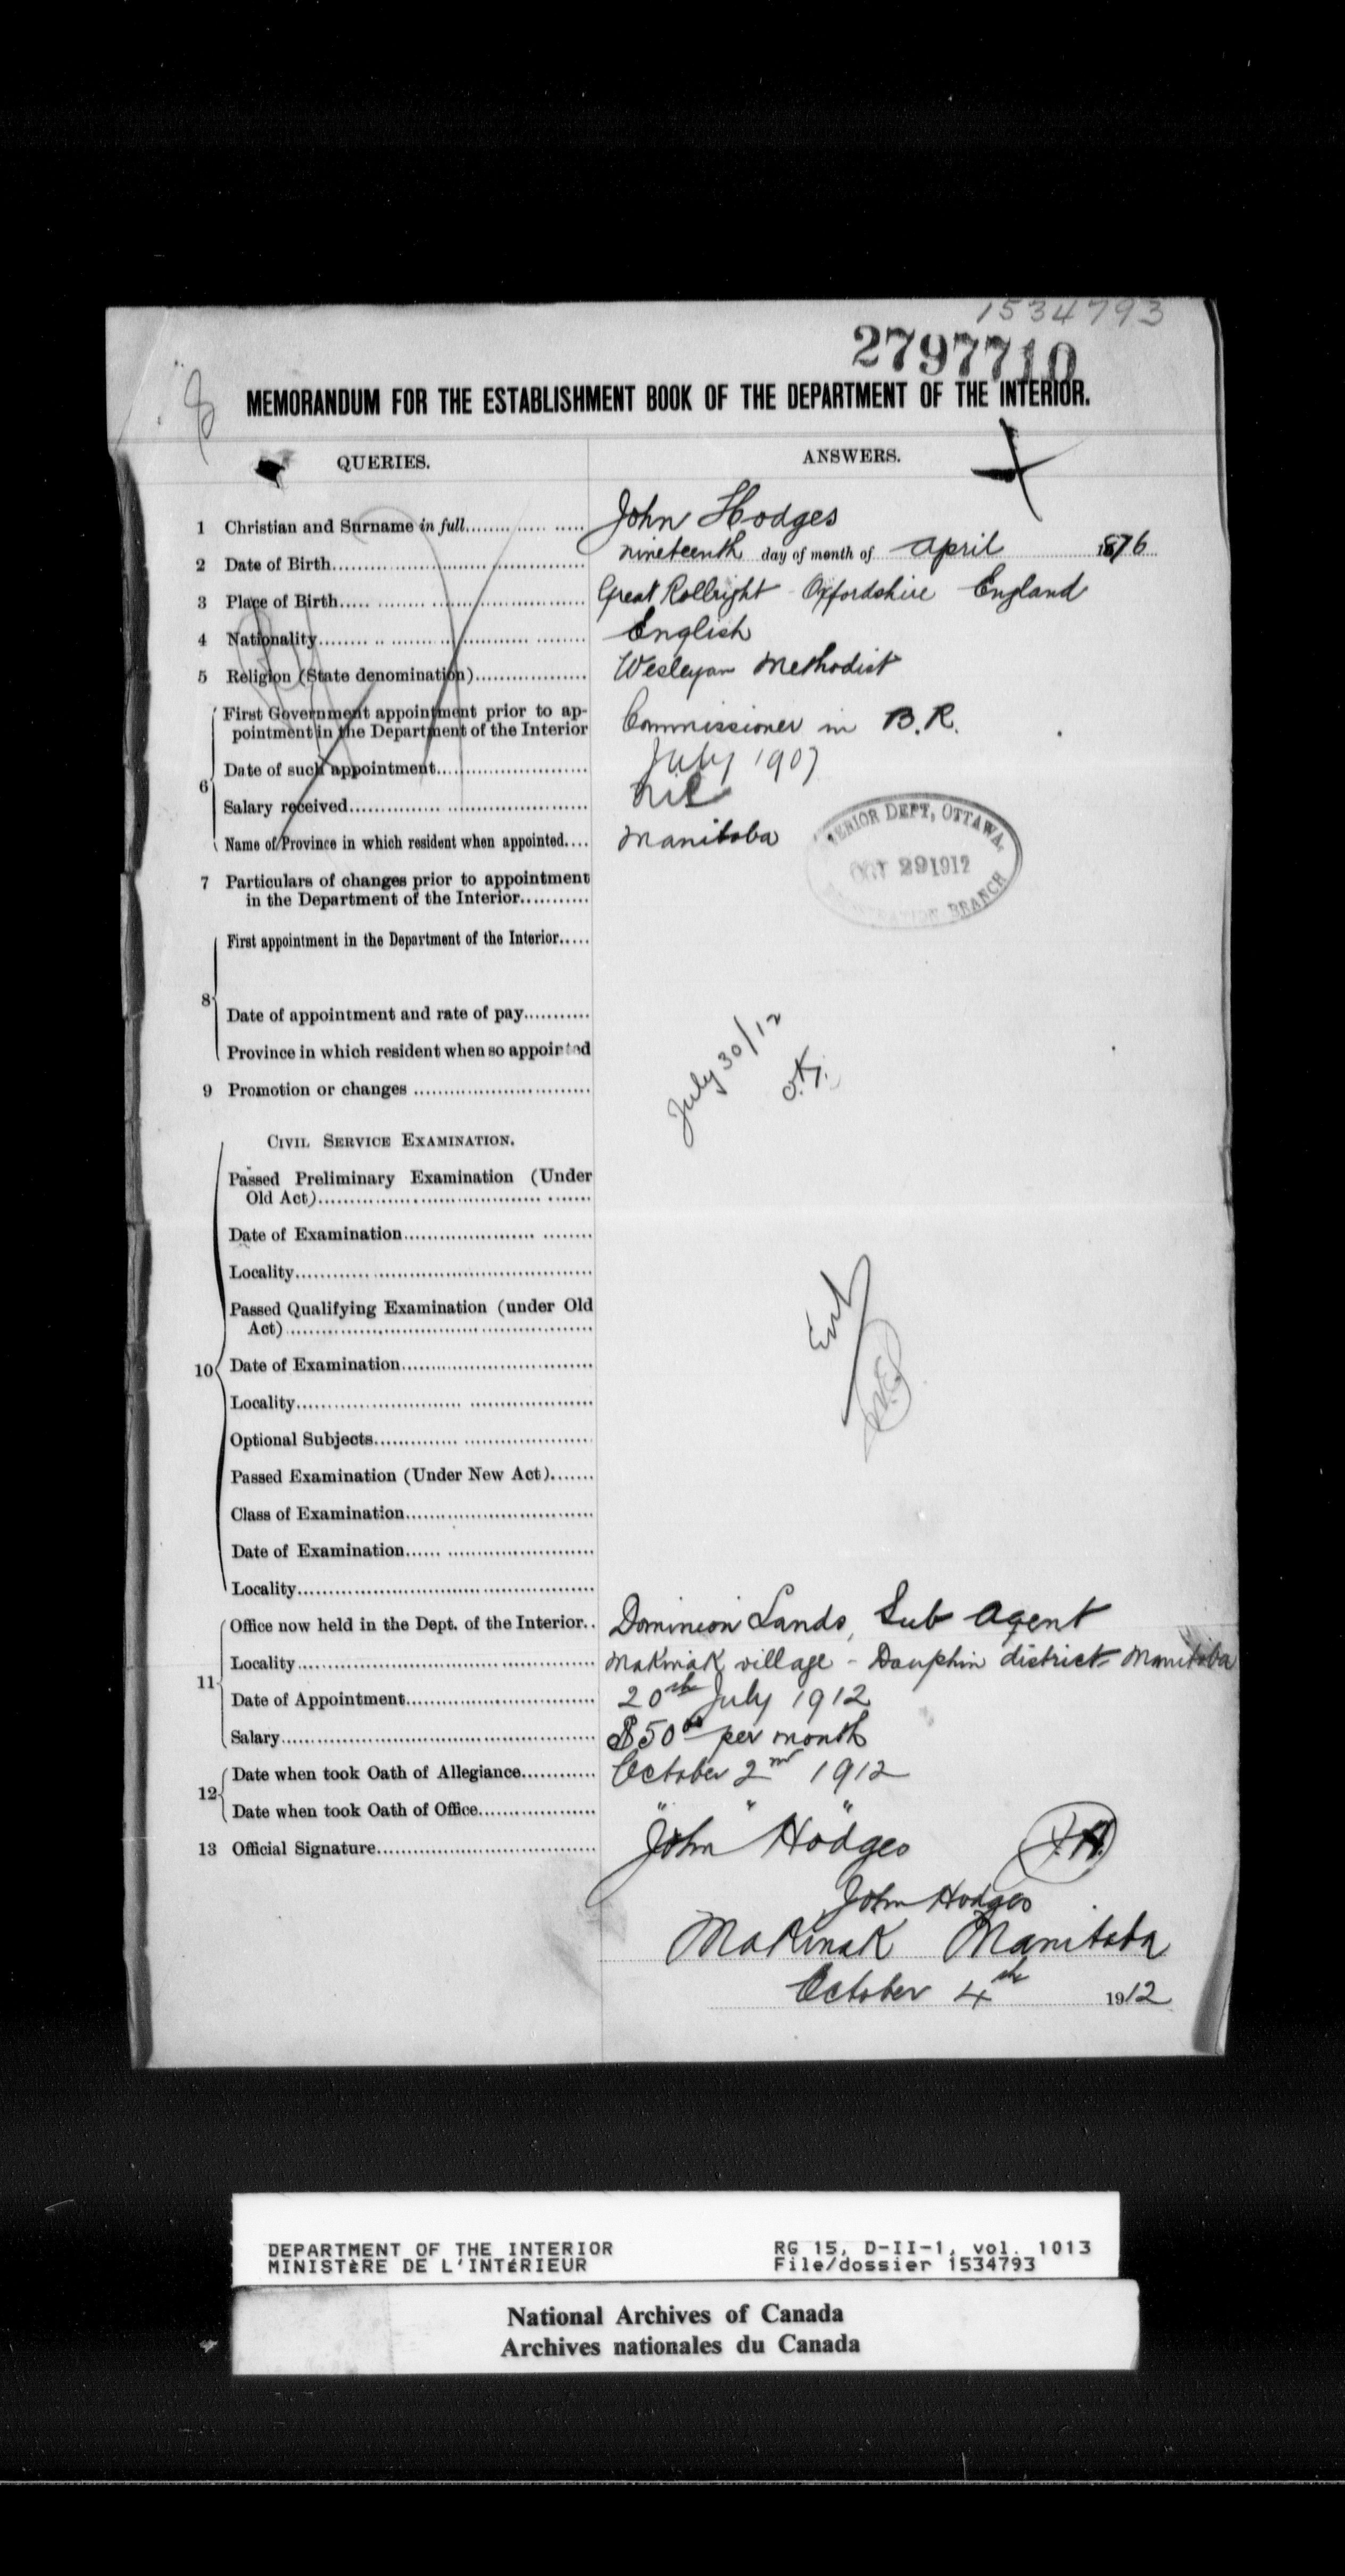 1534793
2797710
MEMORANDUM FOR THE ESTABLISHMENT BOOK OF THE DEPARTMENT OF THE INTERIOR.
QUERIES. ANSWERS.
1 Christian and Surname in full John Hodges
2 Date of Birth nineteenth day of month of April 1876
3 Place of Birth Great Rollright Oxfordshire England
4 Nationality English
5 Religion (State denomination) Wesleyan Methodist
6 First Government appointment prior to ap-
pointment in the Department of the Interior Commissioner in B.R.
Date of such appointment July 1907
Salary received nil
Name of Province in which resident when appointed Manitoba
ERIOR DEPT, OTTAWA.
OCT 29 1912
REGISTRATION BRANCH
7 Particulars of changes prior to appointment
in the Department of the Interior
8 First appointment in the Department of the Interior
Date of appointment and rate of pay
Province in which resident when so appointed
July 30/12
O.K.
9 Promotion or changes
CIVIL SERVICE EXAMINATION.
10 Passed Preliminary Examination (Under
Old Act)
Date of Examination
Locality
Passed Qualifying Examination (under Old
Act)
Date of Examination
Locality
Optional Subjects
Passed Examination (Under New Act)
Class of Examination
Date of Examination
Locality
11 Office now held in the Dept. of the Interior Dominion Lands, Sub Agent
Locality Makinak village - Dauphin district - Manitoba
Date of Appointment 20th July 1912
Salary $50.00 per month
12 Date when took Oath of Allegiance October 2nd 1912
Date when took Oath of Office " " "
13 Official Signature John Hodges J.H.
John Hodges
Makinak Manitoba
October 4th 1912
DEPARTMENT OF THE INTERIOR RG 15, D-II-1, vol. 1013
MINISTÈRE DE L'INTÉRIEUR File/dossier 1534793
National Archives of Canada
Archives nationales du Canada